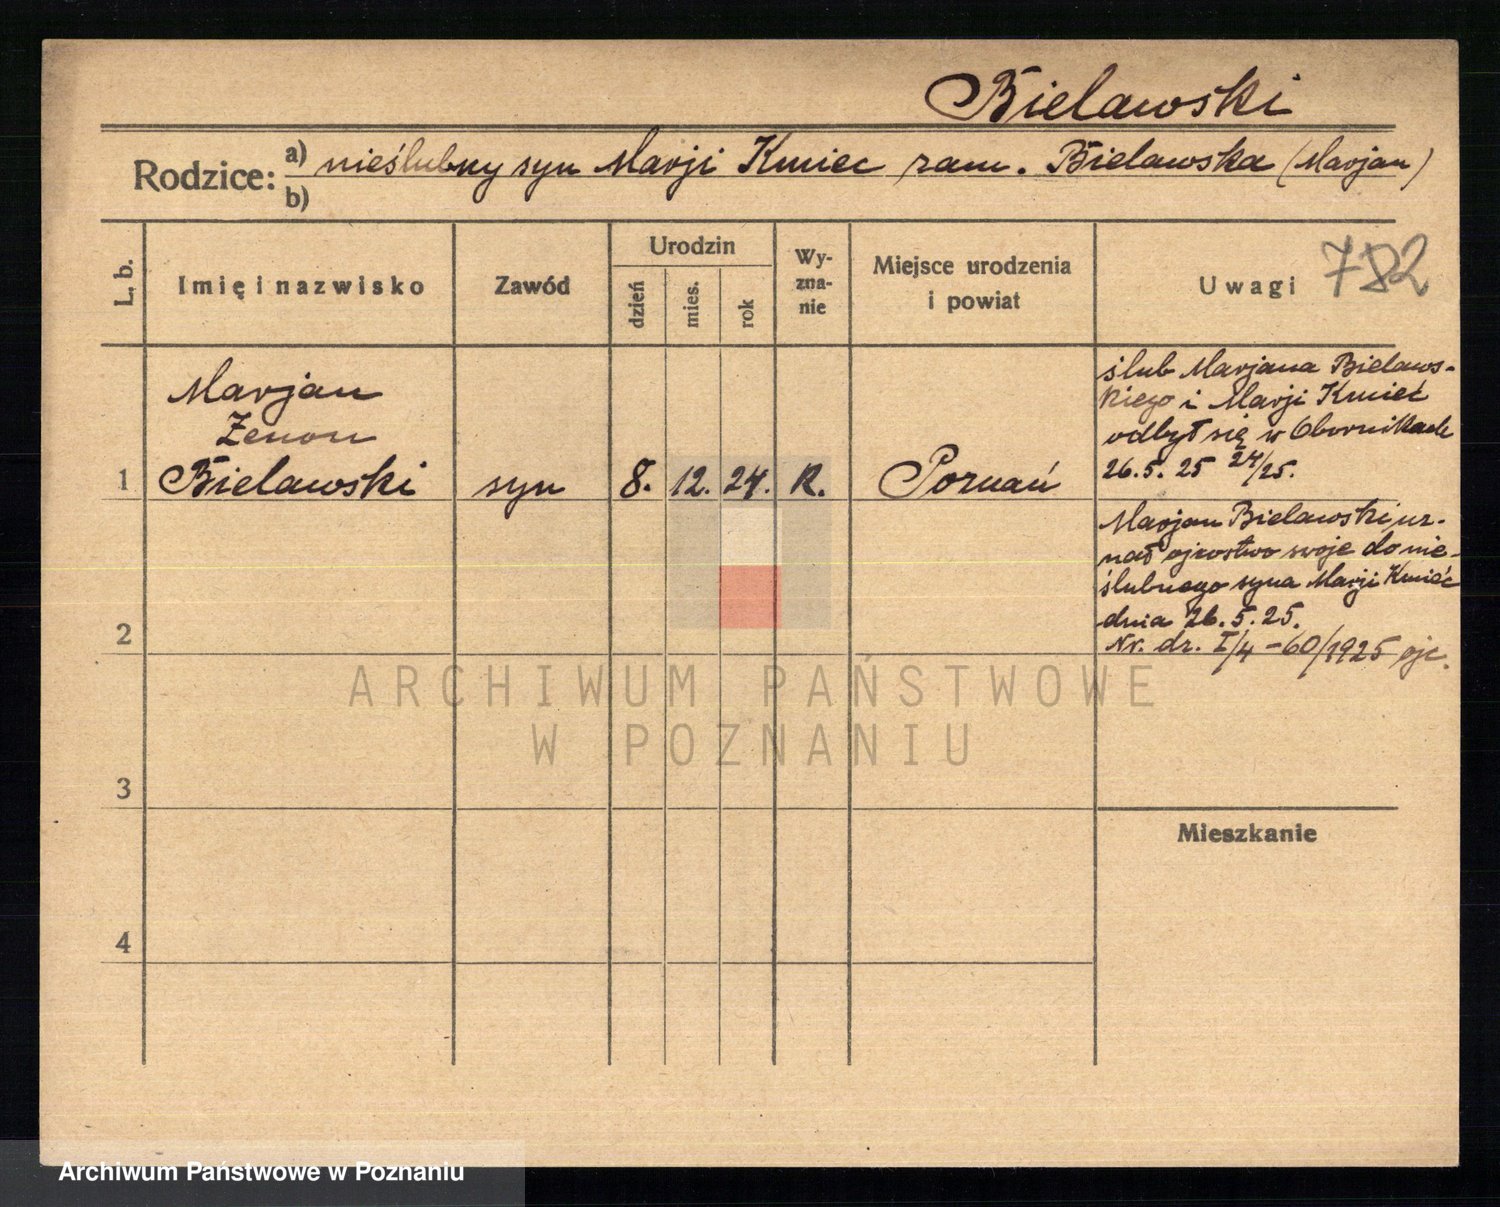 Bielawski
Rodzice: a) nieślubny syn Marji Kmiec zam. Bielawska (Marjan)
b)
L. b.
Imię i nazwisko
Zawód
Urodzin
dzień
mies.
rok
Wy-
zna-
nie
Miejsce urodzenia
i powiat
Uwagi 782
Marjan
Zenon
1 Bielawski syn 8. 12. 24. R. Poznań
ślub Marjana Bielaws-
kiego i Marji Kmieć
odbył się w Obornikach
26.5.25 24/25.
Marjan Bielawski uz-
nał ojcostwo swoje do nie-
ślubnego syna Marji Kmieć
dnia 26.5.25.
Nr. dz. I/4-60/1925 ojc.
2
ARCHIWUM PAŃSTWOWE
W POZNANIU
3
Mieszkanie
4
Archiwum Państwowe w Poznaniu